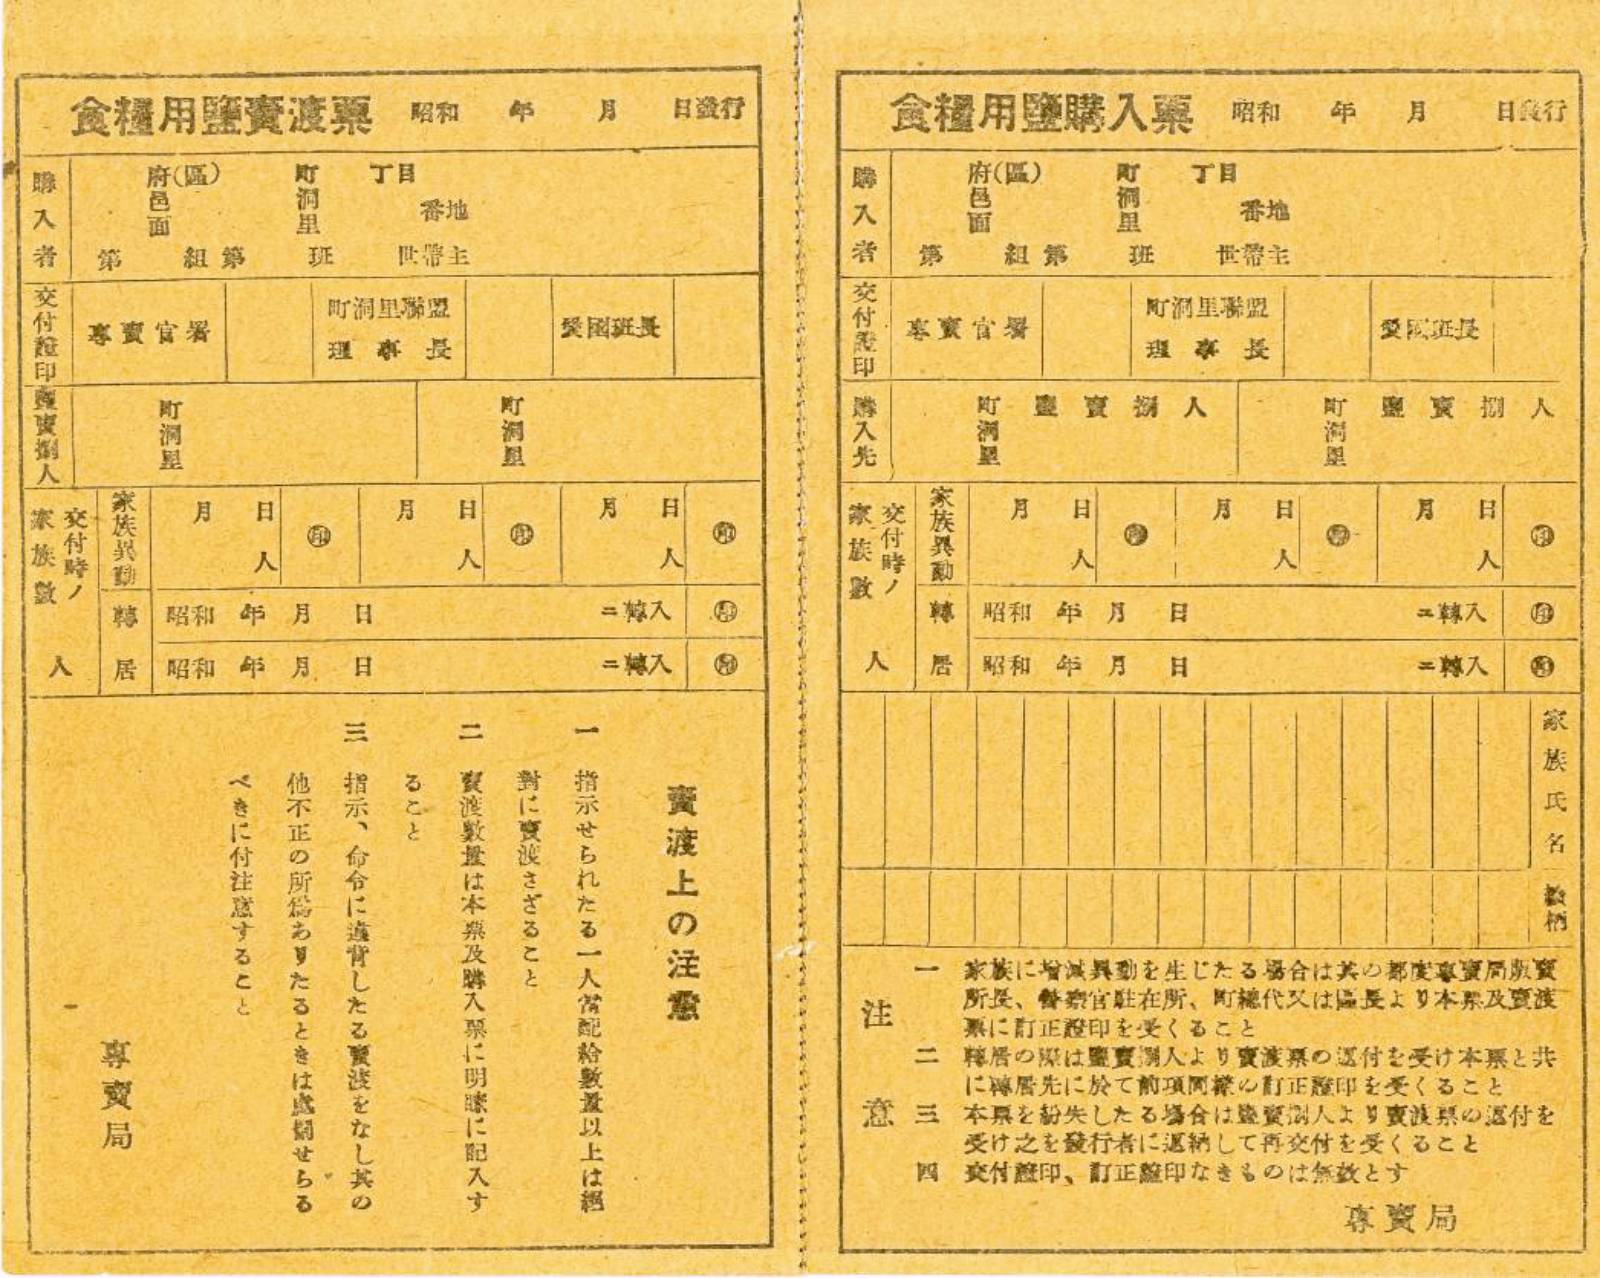 食糧用鹽賣渡票 昭和 年 月 日發行
購入者
府(區) 町 丁目
邑 洞
面 里 番地
第 組第 班 世帶主
交付證印
專賣官署
町洞里聯盟
理事長
愛國班長
鹽賣捌人
町洞里
町洞里
交付時ノ
家族數
人
家族異動
月 日 人 印
月 日 人 印
月 日 人 印
轉居
昭和 年 月 日 ニ轉入 印
昭和 年 月 日 ニ轉入 印
賣渡上の注意
一 指示せられたる一人當配給數量以上は絕
對に賣渡さざること
二 賣渡數量は本票及購入票に明瞭に記入す
ること
三 指示、命令に違背したる賣渡をなし其の
他不正の所爲ありたるときは處罰せらる
べきに付注意すること
專賣局
食糧用鹽購入票 昭和 年 月 日發行
購入者
府(區) 町 丁目
邑 洞
面 里 番地
第 組第 班 世帶主
交付證印
專賣官署
町洞里聯盟
理事長
愛國班長
購入先
町洞里 鹽賣捌人
町洞里 鹽賣捌人
交付時ノ
家族數
人
家族異動
月 日 人 印
月 日 人 印
月 日 人 印
轉居
昭和 年 月 日 ニ轉入 印
昭和 年 月 日 ニ轉入 印
家族氏名
續柄
注意
一 家族に增減異動を生じたる場合は其の都度專賣局販賣
所長、警察官駐在所、町總代又は區長より本票及賣渡
票に訂正證印を受くること
二 轉居の際は鹽賣捌人より賣渡票の返付を受け本票と共
に轉居先に於て前項同樣の訂正證印を受くること
三 本票を紛失したる場合は鹽賣捌人より賣渡票の返付を
受け之を發行者に返納して再交付を受くること
四 交付證印、訂正證印なきものは無效とす
專賣局